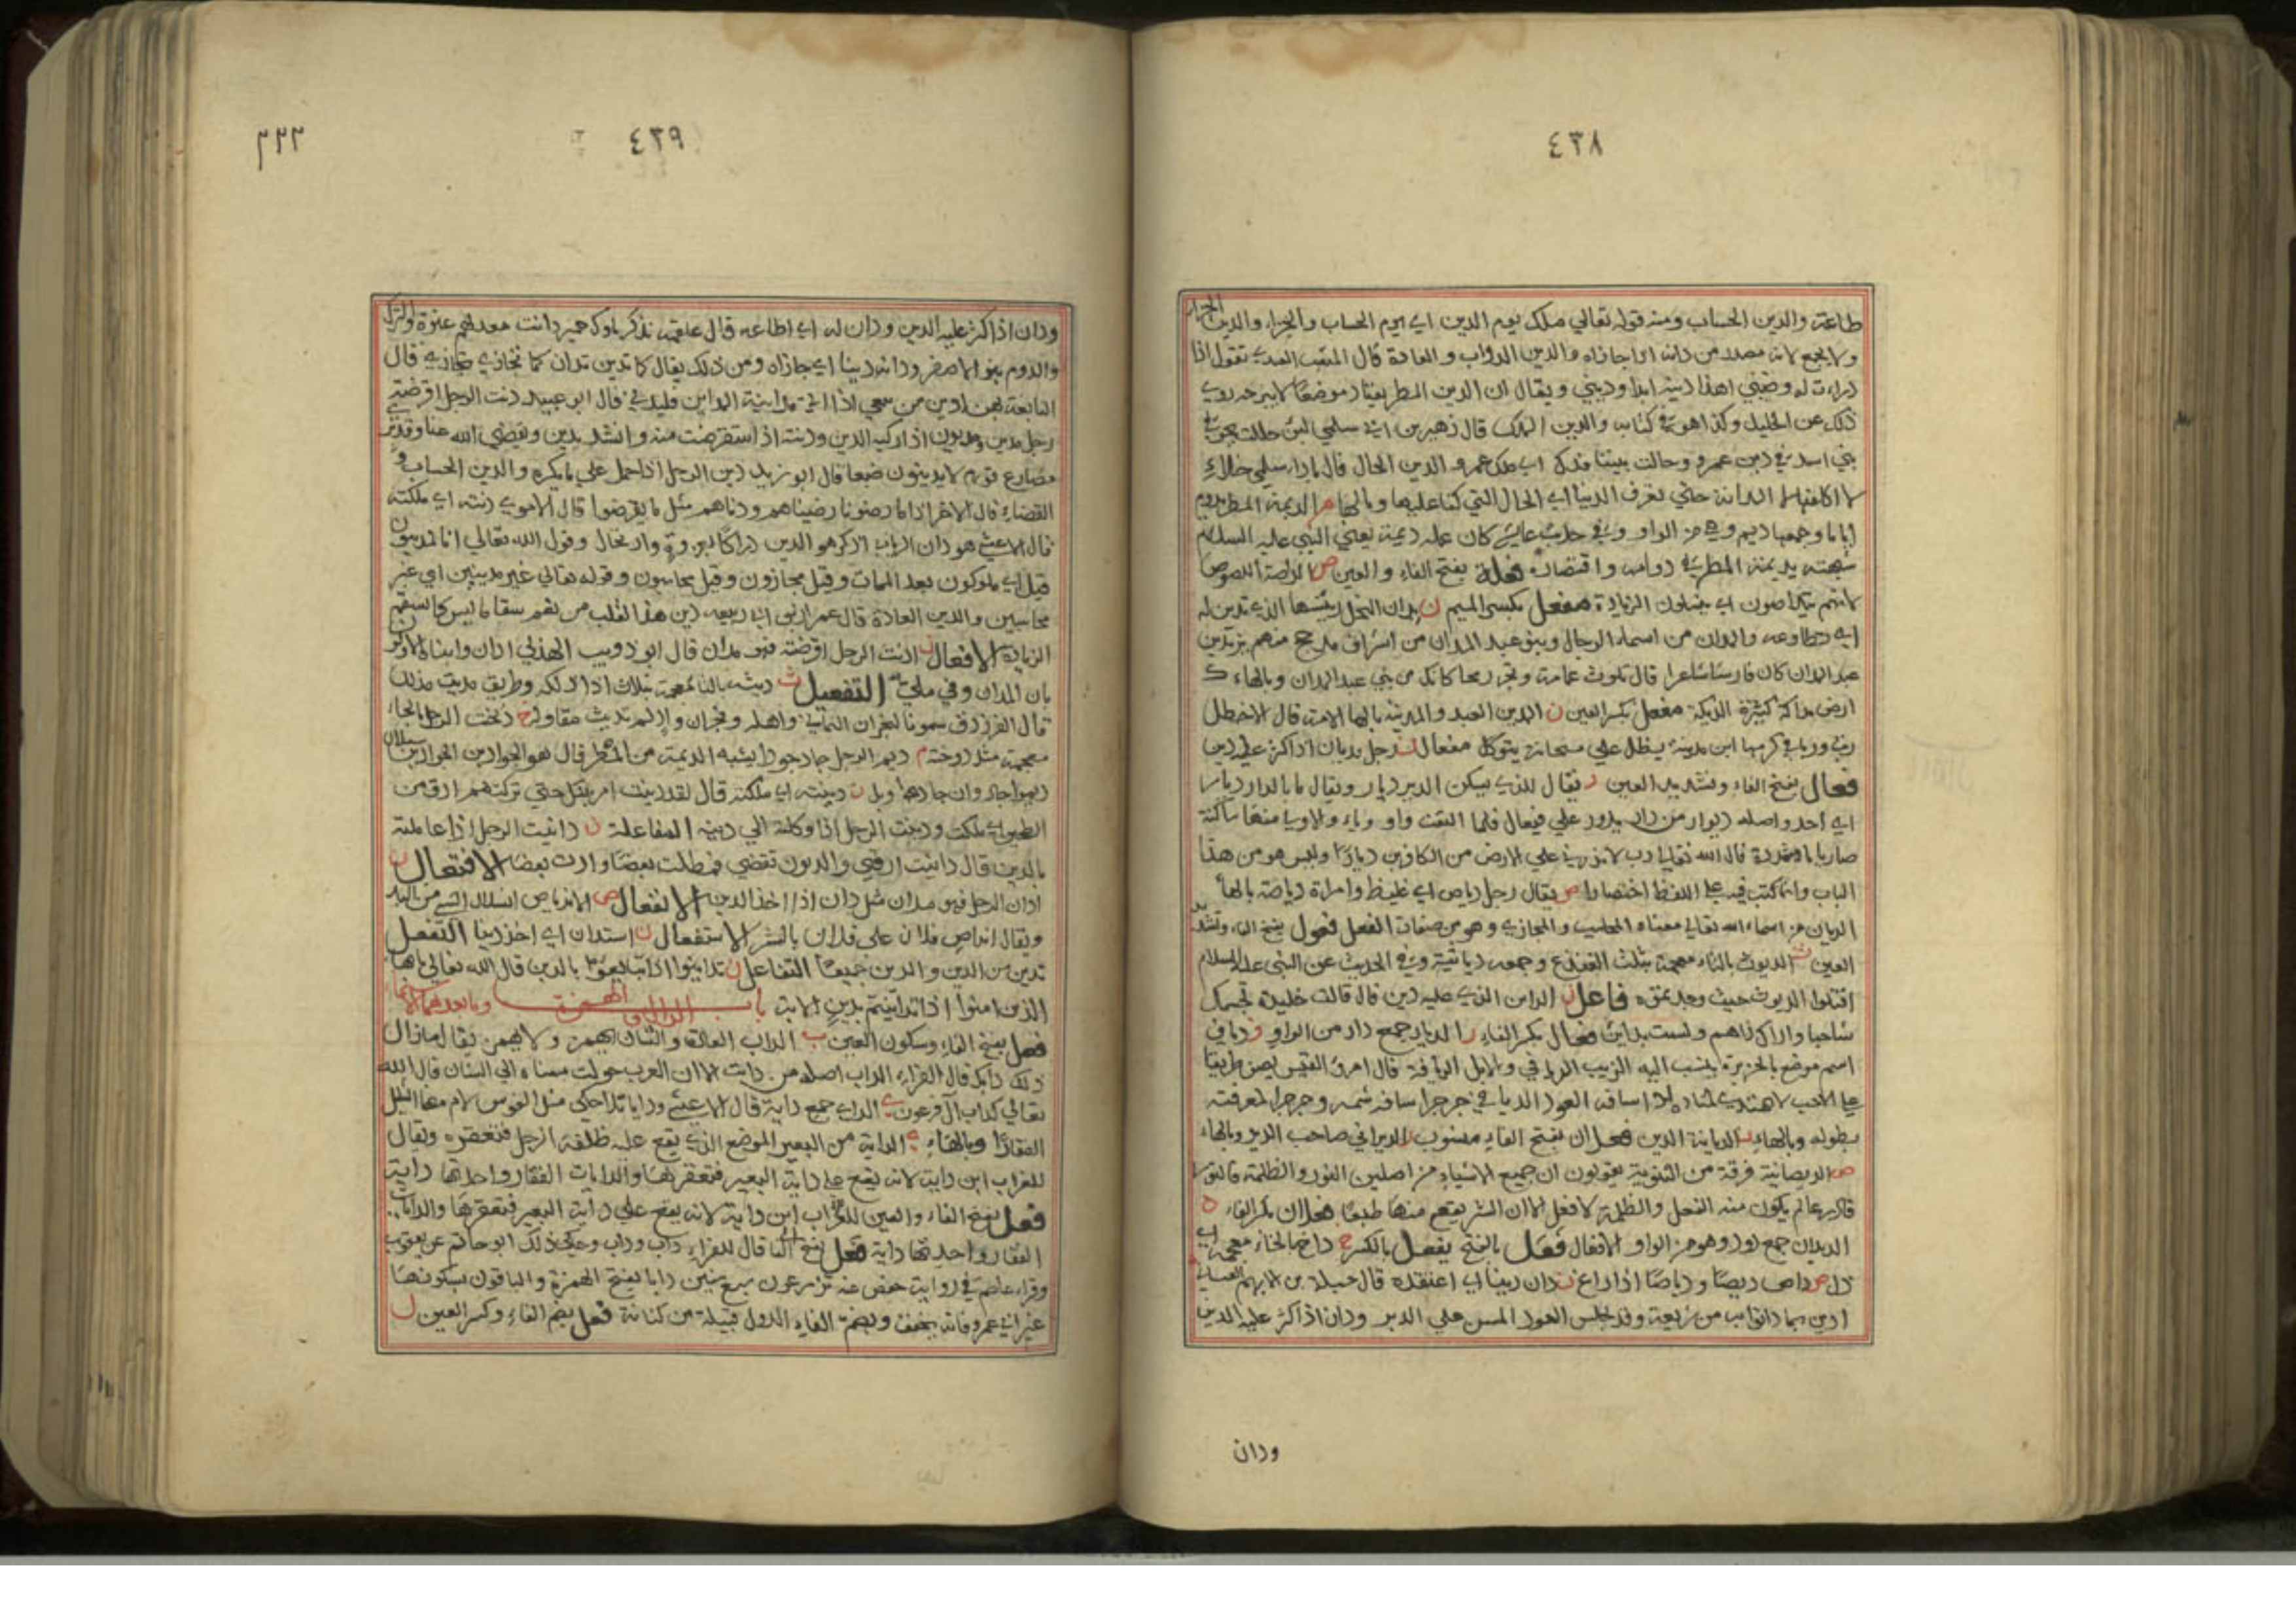 ٤٣٨
طاعته والدين الحساب ومنه قوله تعالي ملك يوم الدين اي يوم الحساب والجزاء والدين الجزاء
ولا يجمع لانه مصدر من دانه اذا جازاه والدين الدواب و العادة قال المثقب العبدي تقول اذا
درات له وضيني اهذا دينه ابدا وديني ويقال ان الدين المطر يعتاد موضعا لا يبرحه روي
ذلك عن الخليل وكذا هو في كتابه والدين الملك قال زهير بن ابي سلمي لئن حللت بجو في
بني اسد في دين عمرو وحالت بيننا فدك اي ملك عمرو والدين الحال قال يا دار سلمي خلاء
لا اكلفها الا المرانة حتي تعرف الدينا اي الحال التي كنا عليها وبالهاء م الديمة المطر يدوم
اياما وجمعها ديم وهي من الواو وفي حديث عايشة كان عمله ديمة يعني النبي عليه السلام
شبهته بديمة المطر في دوامه واقتصاده فعلة بفتح الفاء والعين ص الداصة اللصوص
مفعل بكسر الميم ن مدان
اي وطاوعه والمدان من اسماء الرجال وبنو عبد المدان من اشراف مذحج منهم يزيد بن
عبد المدان كان فارسا شاعرا قال تلوث عمامة وتجر رمحا كانك من بني عبد المدان وبالهاء ك
ارض مداكة كثيرة الديكة مفعل بكسر العين ن المدين العبد والمدينة بالهاء الامة قال الاخطل
ربت وربا في كرمها ابن مدينة يظل علي مسحاته يتوكل مفعال ن رجل مديان اذا كثر عليه دين
فعال بفتح الفاء وتشديد العين ر يقال للذي يسكن الدير ديار ويقال ما بالدار ديار
اي احد واصله ديوار من دار يدور علي فيعال فلما التقت واو وياء والاولي منهما ساكنة
صارتا ياء مشددة قال الله تعالي رب لا تذر علي الارض من الكافرين ديارا وليس هو من هذا
الباب وانما كتب فيه علي اللفظ اختصارا ص يقال رجل دياص اي غليظ وامراة دياصة بالهاء
الديان من اسماء الله تعالي معناه المحاسب والمجازي وهو من صفات الفعل فعول بفتح الفاء وتشديد
العين ث الديوث بالثاء معجمة بثلث القنذع وجمعه دياثية وفي الحديث عن النبي عليه السلام
اقتلوا الديوث حيث وجدتموه فاعل ن الداين الذي عليه دين قال قالت خليدة تجهمك
شاحبا واراك ذاهم ولست بداين فعال بكسر الفاء ر الديار جمع دار من الواو ف دياف
اسم موضع بالجزيرة ينسب اليه الزيت الديافي والابل الديافية قال امرؤ القيس يصف طريقا
علي لاحب لا يهتدي لمناره اذا سافه العود الديافي جرجرا سافه شمه وجرجر لمعرفته
بطوله وبالهاء ن الديانة الدين فعلان بفتح الفاء منسوب ر الديراني صاحب الدير وبالهاء
ص الديصانية فرقة من الثنوية يقولون ان جميع الاشياء من اصلين النور والظلمة فالنور
قادر عالم يكون منه الفعل والظلمة لا فعل لها ان الشر يقع منها طبعا فعلان بكسر الفاء د
الديدان جمع دود وهو من الواو الافعال فعل بالفتح يفعل بالكسر خ داخ بالخاء معجمة اي
ذل ص داص ديصا ودياصا اذا زاغ ن دان دينا اي اعتقده قال جبلة بن الايهم الغساني
ادين بما دانوا به من شريعة وقد يجلس العود المسن علي الدبر ودان اذا كثر عليه الدين
ودان
٤٣٩
٢٢٢
ودان اذا كثر عليه الدين ودان له اي اطاعه قال علقمة نذكر ملوك حمير دانت معد لهم عنوة والترك
والروم بنو الاصفر ودانه دينا اي جازاه ومن ذلك يقال كما تدين تدان كما تجازي تجازي قال
النابغة ابو عبيد دنت الرجل اقرضته
رجل مدين ومديون اذا ركبه الدين ودنته اذا استقرضت منه وانشد يدين ويقضي الله عنا وقد نري
مصارع قوم لا يدينون ضيعا قال ابو زيد دين الرجل اذا حمل علي ما يكره والدين الحساب و
القضاء قال الاخر اذا ما رضونا رضيناهم ودناهم مثل ما يقرضوا قال الاموي دنته اي ملكته
قال الاعشي هو دان الرباب اذ كرهو الدين دراكا بغزوة وارتحال وقول الله تعالي انا لمدينون
قيل اي مملوكون بعد الممات وقيل مجازون وقيل محاسبون وقوله تعالي غير مدينين اي غير
محاسبين والدين العادة قال عمر بن ابي ربيعة دين هذا القلب من نعم سقاما ليس كالسقم
الزيادة الافعال ن ادنت الرجل اقرضته فهو مدان قال ابو ذويب الهذلي ادان وانباه الاولون
بان المدان وفي ملي التفعيل ث ديثه بالثاء معجمة بثلاث اذا ذلله وطريق مديث مذلل
قال الفرزدق خ دخت الرجل بالخاء
معجمة مثل دوخته م ديم الرجل جاد جودا يشبه الديمة من المطر قال هو الجواد بن الجواد بن سبل ان
ديموا جاد وان جادوا وبل ن دينته اي ملكته قال لقد دينت امر بنيك حتي تركتهم ادق من
الطحين اي ملكت ودينت الرجل اذا وكلته الي دينه المفاعلة ن داينت الرجل اذا عاملته
بالدين قال داينت اروي والديون تقضي فمطلت بعضا وادت بعضا الافتعال ن
ادان الرجل فهو مدان مثل دان اذا اخذ الدين الانفعال ص الاندياص انسلال الشي من اليد
ويقال انداص فلان علي فلان بالشر الاستفعال ن استدان اي اخذ دينا التفعل
تدين من الدين والدين جميعا التفاعل ن تداينوا اذا تبايعوا بالدين قال الله تعالي يا ايها
الذين امنوا اذا تداينتم بدين الاية باب الدال والهمزة وما بعدهما الاسماء
فعل بفتح الفاء وسكون العين ب الداب العادة والشان يهمز ولا يهمز يقال ما زال
ذلك دابك قال الفراء الداب اصله من دابت الا ان العرب حولت معناه الي الشان قال الله
تعالي كداب آل فرعون ي الداي جمع داية قال الاعشي ودايا تلاحكن مثل الفؤوس
الفقارا وبالهاء ي الداية من البعير الموضع الذي يقع عليه ظلفة الرحل فتعقره ويقال
للغراب ابن داية لانه يقع علي داية البعير فتعقرها والدايات الفقار واحدتها داية
فعل بفتح الفاء والعين للغراب ابن داية لانه يقع علي داية البعير فتعقرها والدايات
الفقار واحدتها داية فعل بفتح الفاء قال للفراء داب وداب وحكي ذلك ابو حاتم عن يعقوب
وقراءة عاصم في رواية حفص عنه تزرعون سبع سنين دابا بفتح الهمزة والباقون بسكونها
غير ابي عمرو فانه يخفف وبضم الفاء الدول قبيلة من كنانة فعل بضم الفاء وكسر العين ل